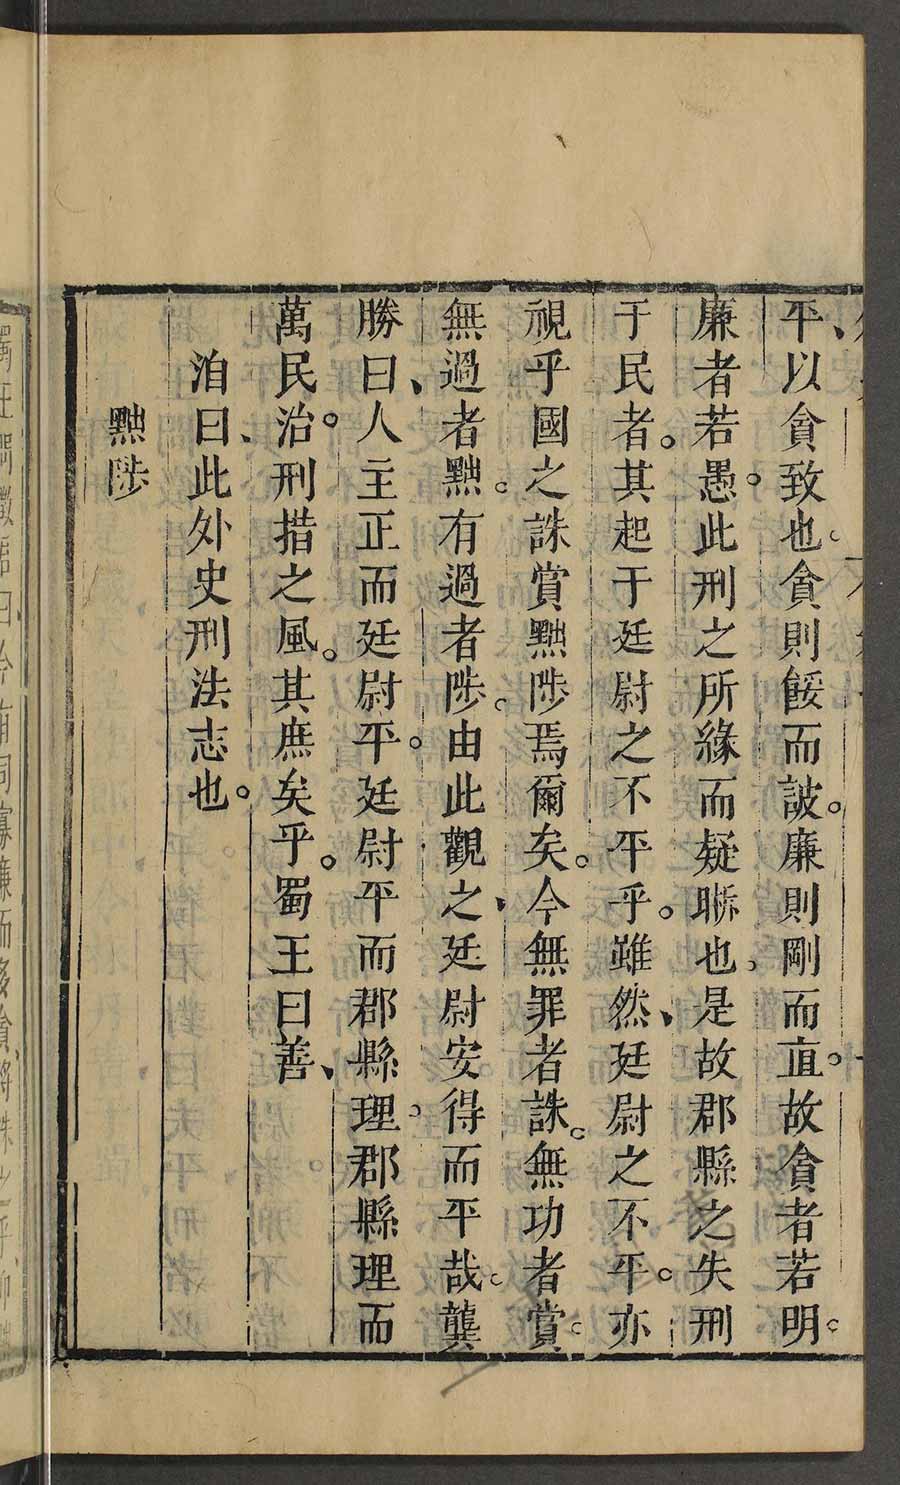 平、以貪致也。貪則餒而詖。廉則剛而直。故貪者若明。
廉者若愚。此刑之所緣而疑聮也。是故郡縣之失刑
于民者。其起于廷尉之不平乎。雖然、廷尉之不平。亦
視乎國之誅賞黜陟焉爾矣。今無罪者誅。無功者賞。
無過者黜。有過者陟。由此觀之、廷尉安得而平哉。龔
勝曰、人主正而廷尉平。廷尉平而郡縣理。郡縣理而
萬民治。刑措之風。其庶矣乎。蜀王曰善、
洎曰、此外史刑法志也。
黜陟